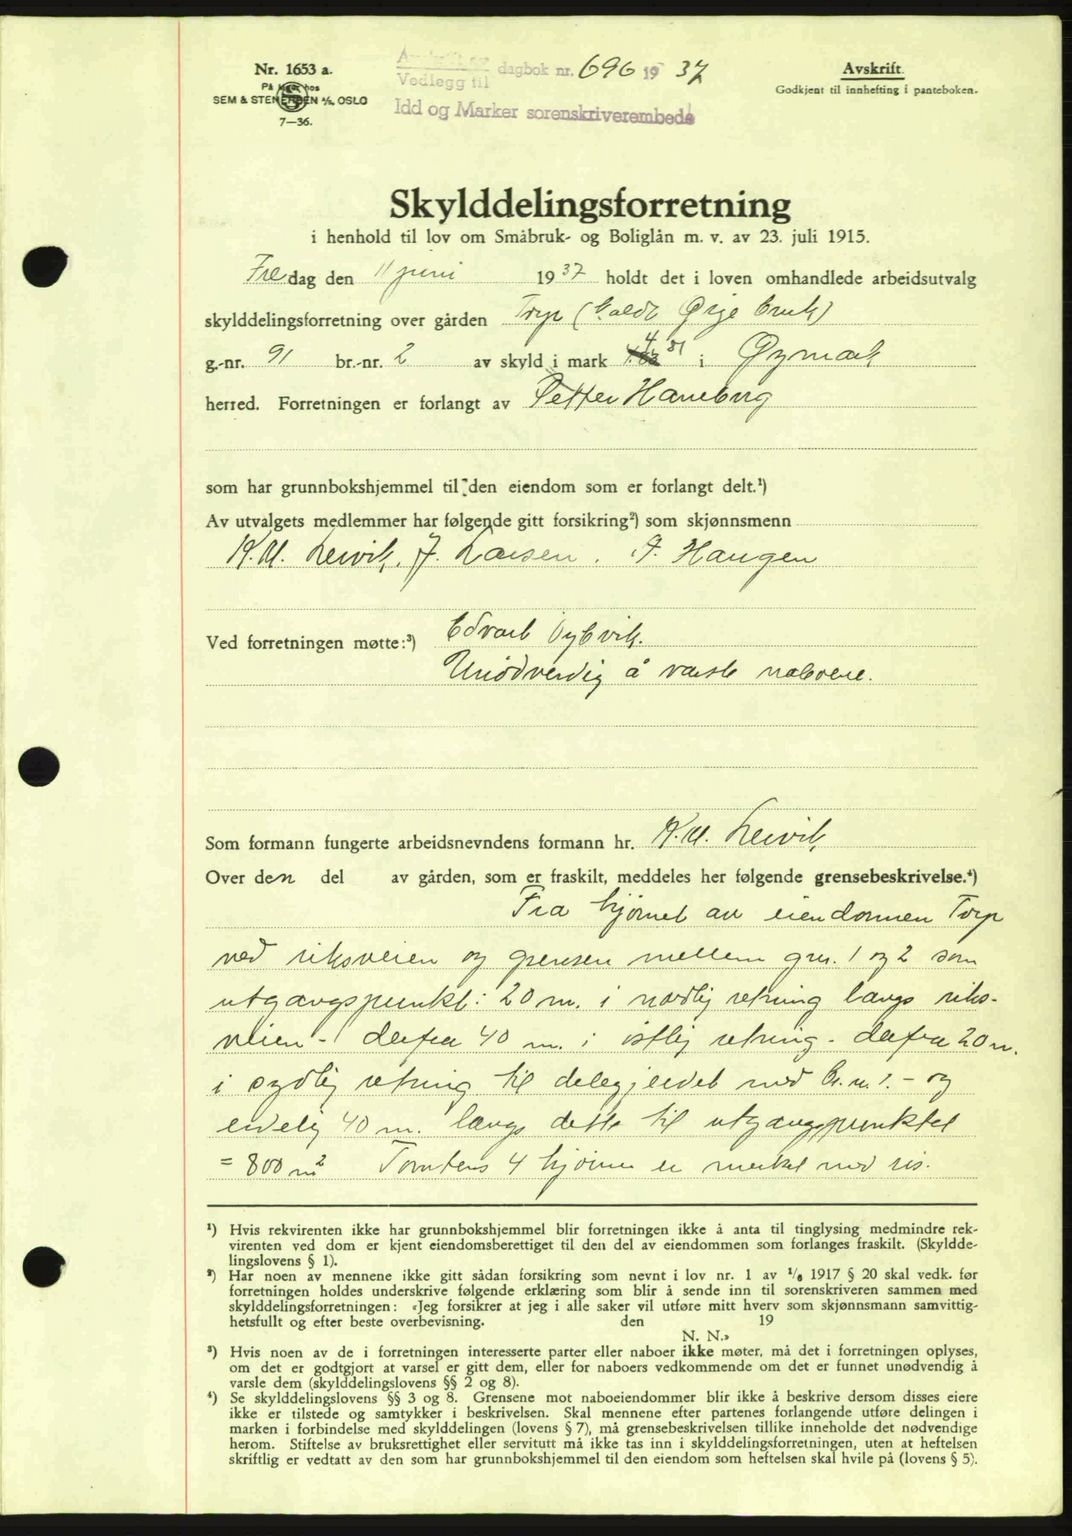 Nr. 1653 a.
På lager hos
SEM & STENERSEN A/S, OSLO
7—36.
Vedlegg til dagbok nr. 696 19 37
Idd og Marker sorenskriverembede
Avskrift.
Godkjent til innhefting i panteboken.
Skylddelingsforretning
i henhold til lov om Småbruk- og Boliglån m. v. av 23. juli 1915.
Fredag den 11 juni 1937 holdt det i loven omhandlede arbeidsutvalg
skylddelingsforretning over gården Torp (kaldt Ørje bruk)
g.-nr. 91 br.-nr. 2 av skyld i mark 4 81 i Øymark
herred. Forretningen er forlangt av Petter Haneborg
som har grunnbokshjemmel til den eiendom som er forlangt delt.¹)
Av utvalgets medlemmer har følgende gitt forsikring²) som skjønnsmenn
K. M. Leivik, J. Larsen. P. Haugen
Ved forretningen møtte:³) Edvart Vybvik.
Unødvendig å varsle naboene.
Som formann fungerte arbeidsnevndens formann hr. K. M. Leivik,
Over den del av gården, som er fraskilt, meddeles her følgende grensebeskrivelse.⁴)
Fra hjørnet av eiendommen Torp
ved riksveien og grensen mellem grn. 1 og 2 som
utgangspunkt: 20 m. i nordlig retning langs riks-
veien - derfra 40 m. i østlig retning - derfra 20 m.
i sydlig retning til delegjerdet med br. n. 1. - og
endelig 40 m. langs dette til utgangspunktet
= 800 m² Tomtens 4 hjørner er merket med ris.
¹) Hvis rekvirenten ikke har grunnbokshjemmel blir forretningen ikke å anta til tinglysing medmindre rek-
virenten ved dom er kjent eiendomsberettiget til den del av eiendommen som forlanges fraskilt. (Skyldde-
lingslovens § 1).
²) Har noen av mennene ikke gitt sådan forsikring som nevnt i lov nr. 1 av 1/6 1917 § 20 skal vedk. før
forretningen holdes underskrive følgende erklæring som blir å sende inn til sorenskriveren sammen med
skylddelingsforretningen: «Jeg forsikrer at jeg i alle saker vil utføre mitt hverv som skjønnsmann samvittig-
hetsfullt og efter beste overbevisning. den 19
N. N.»
³) Hvis noen av de i forretningen interesserte parter eller naboer ikke møter, må det i forretningen oplyses,
om det er godtgjort at varsel er gitt dem, eller for naboers vedkommende om det er funnet unødvendig å
varsle dem (skylddelingslovens §§ 2 og 8).
⁴) Se skylddelingslovens §§ 3 og 8. Grensene mot naboeiendommer blir ikke å beskrive dersom disses eiere
ikke er tilstede og samtykker i beskrivelsen. Skal mennene efter partenes forlangende utføre delingen i
marken i forbindelse med skylddelingen (lovens § 7), må grensebeskrivelsen tillike inneholde det nødvendige
herom. Stiftelse av bruksrettighet eller servitutt må ikke tas inn i skylddelingsforretningen, uten at heftelsen
skriftlig er vedtatt av den som har grunnbokshjemmel til den eiendom som heftelsen skal hvile på (lovens § 5).